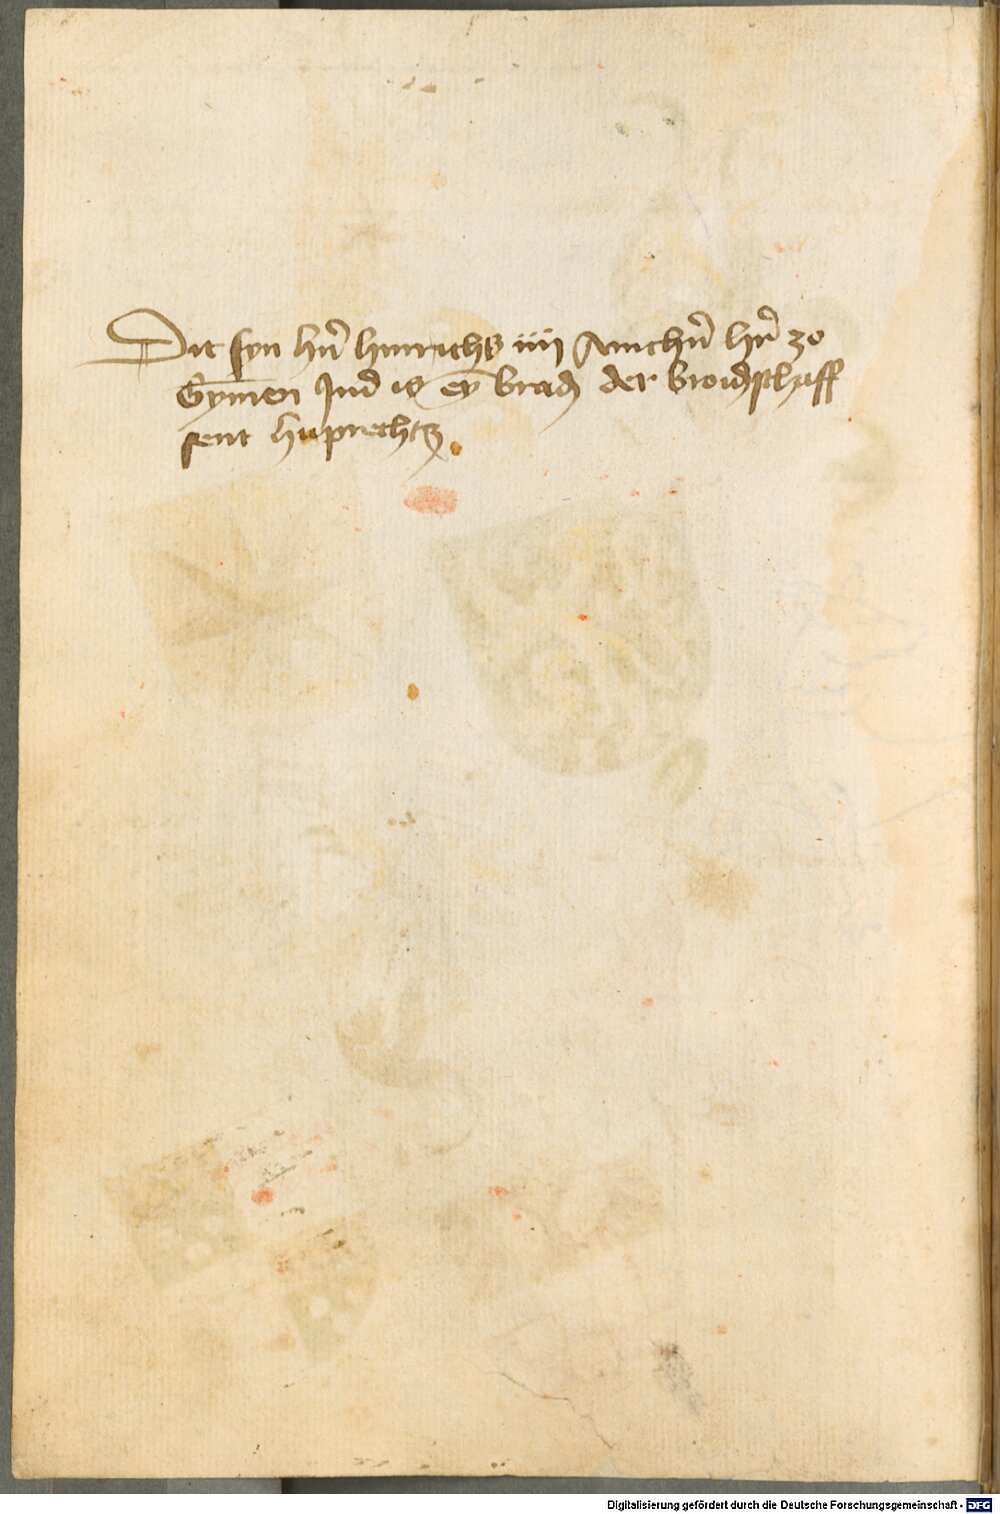 Dit syn hn̄ hinrichs iiij Anichn̄ hn̄ zo
Gymen Jnd is ey brod der broidschaff
sent huprechtz
Digitalisierung gefördert durch die Deutsche Forschungsgemeinschaft - DFG